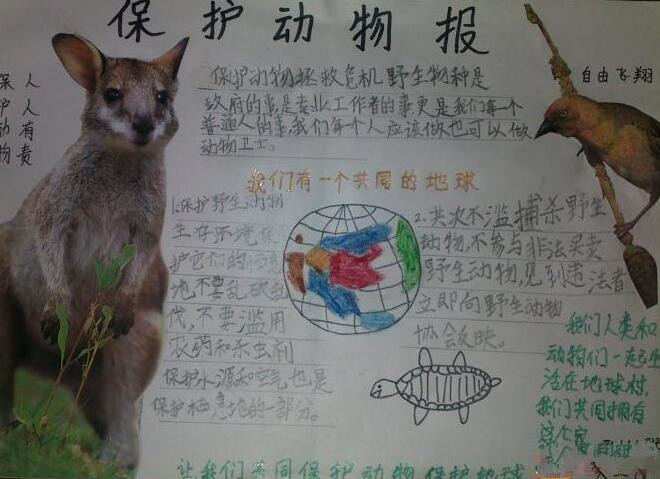 保护动物报
保护动物人人有责
自由飞翔
保护动物拯救危机野生物种是
政府的事是专业工作者的事更是我们每一个
普通人的事,我们每个人应该做也可以做
动物卫士。
我们有一个共同的地球
1.保护野生动物
生存环境保
护它们的栖息
地不要乱砍乱
伐,不要滥用
农药和杀虫剂
保护水源和空气也是
保护栖息地的一部分。
2.共次不滥捕杀野生
动物,不参与非法买卖
野生动物,见到违法者
立即向野生动物
协会反映。
我们人类和
动物们一起生
活在地球村,
我们共同拥有
这个家
让我们共同保护动物保护地球